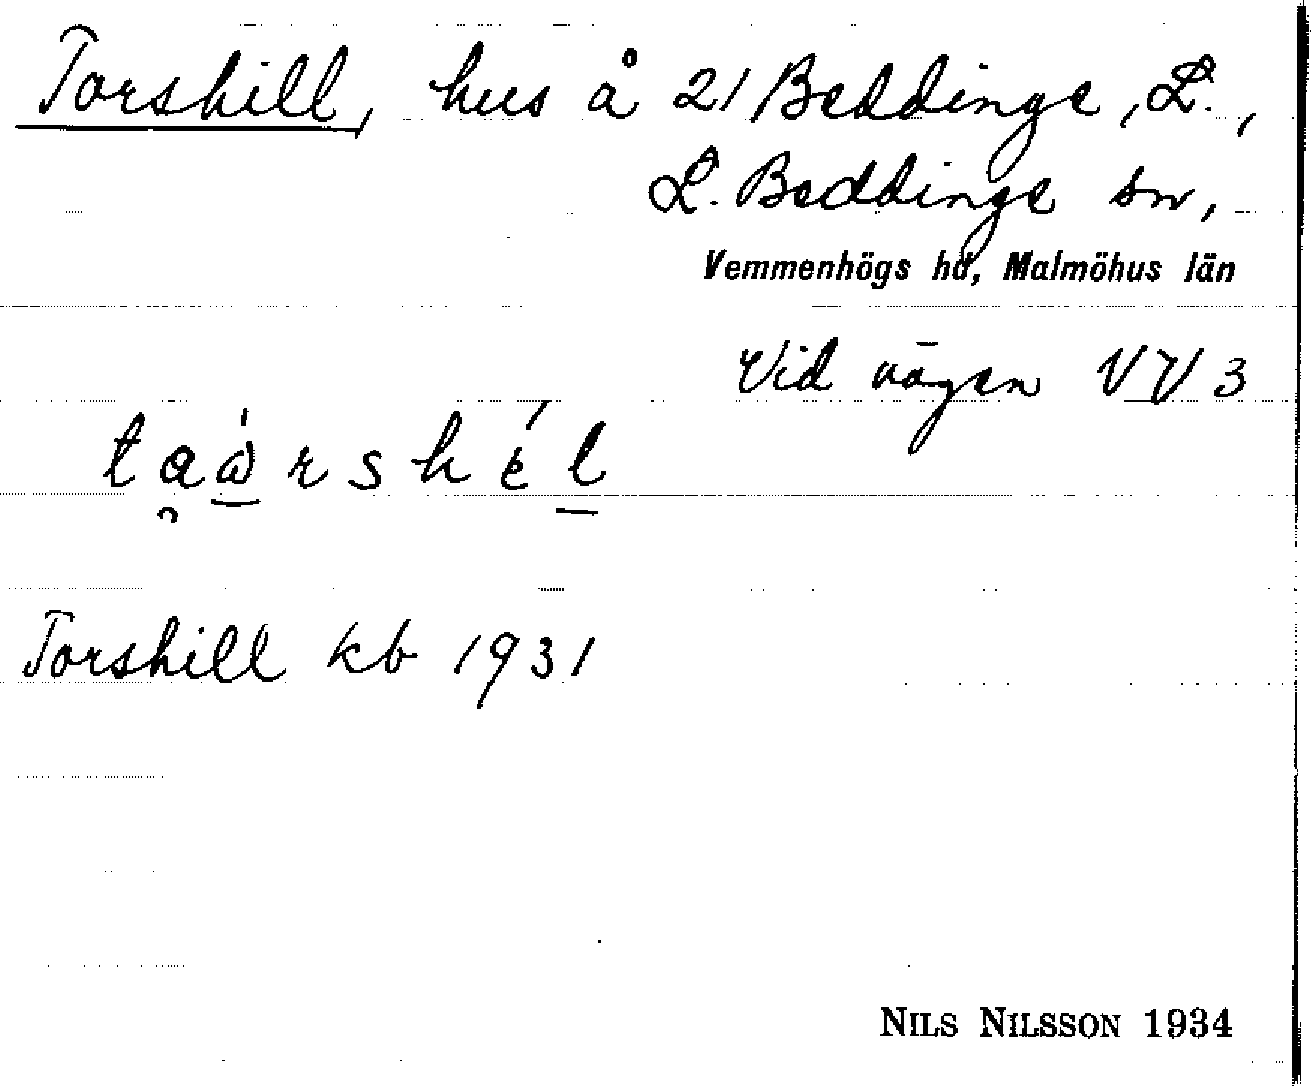 Torshill, hus å 21 Beddinge, L.,
L. Beddinge sn,
Vemmenhögs hd, Malmöhus län
Vid vägen VV 3
Torshill kb 1931
NILS NILSSON 1934